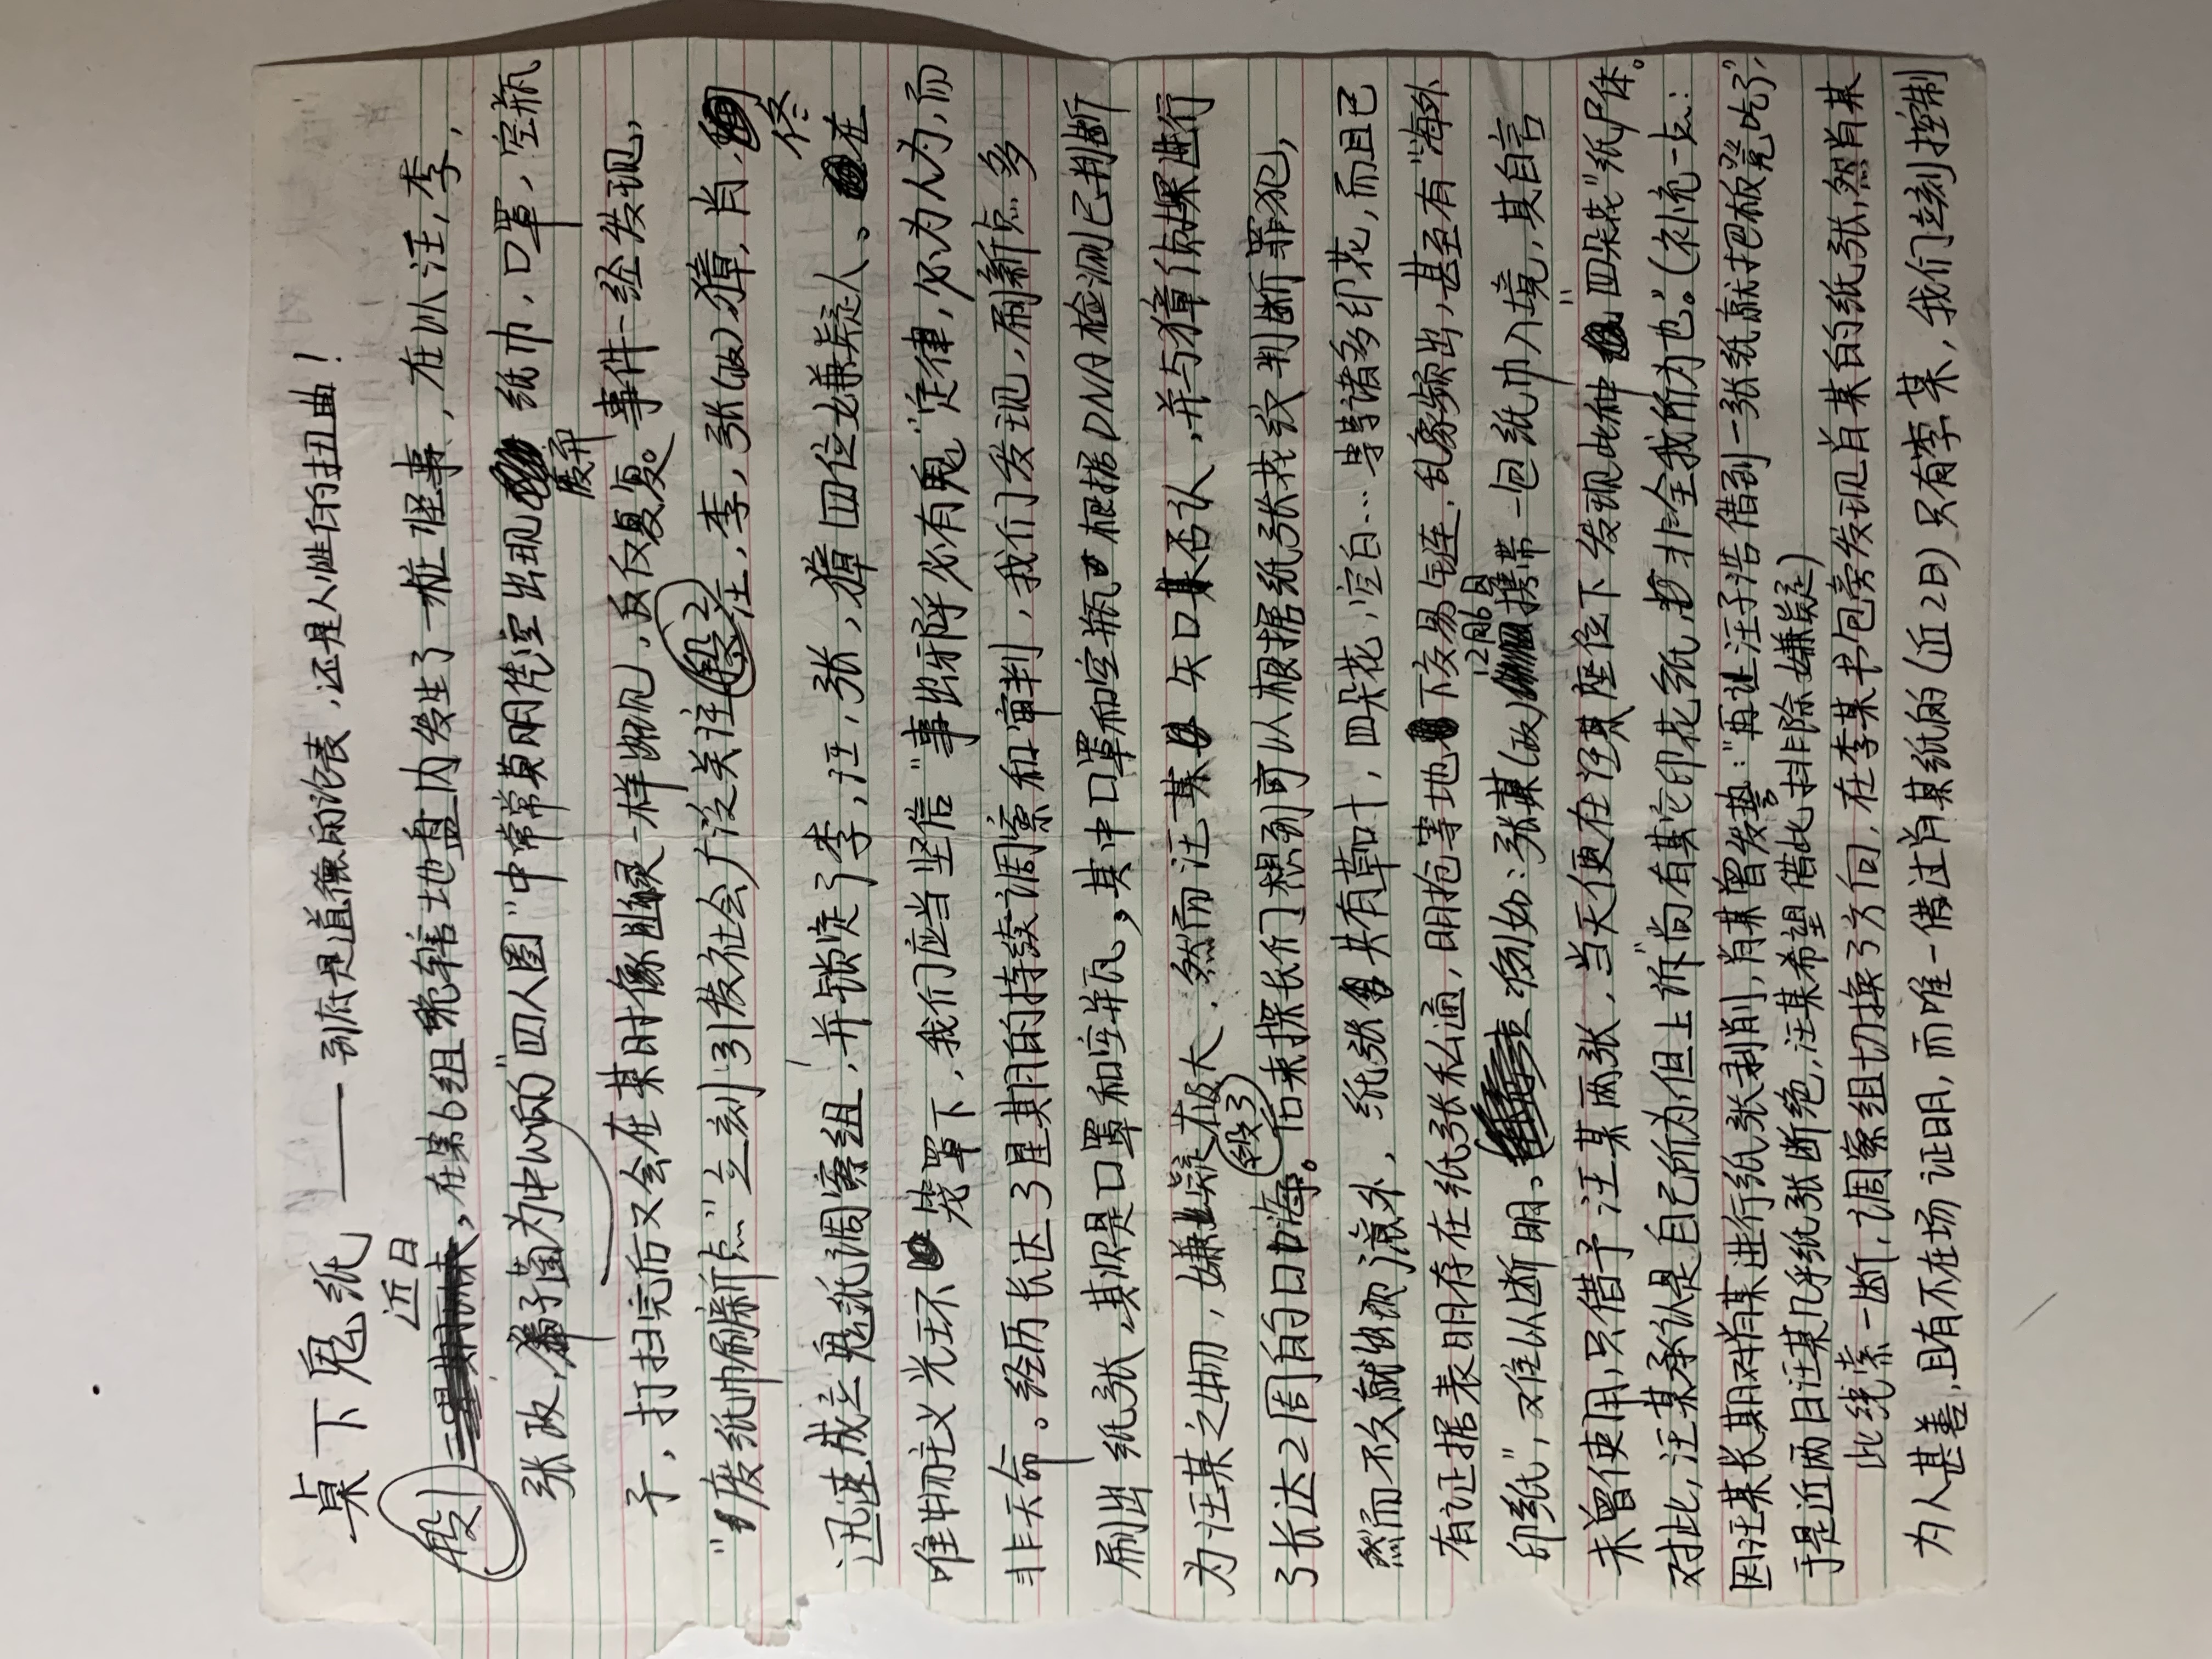 桌下鬼纸 —— 到底是道德的沦丧,还是人性的扭曲!
段1 近日,在第6组管辖地盘内发生了一桩怪事,在以汪,李,
张政,獐子菌为中心的"四人圈"中常常莫明凭空出现废弃纸巾,口罩,空瓶
子,打扫完后又会在某时像出现,反反复复。事件一经发现,
"废纸巾刷新点"立刻引发社会广泛关注 段2 汪,李,张(政),獐,肖,佟
迅速成立鬼纸调察组,并锁定了李,汪,张,獐四位嫌疑人。在
唯物主义光环笼罩下,我们应当坚信"事出邪乎必有鬼"定律,必为人为,而
非天命。经历长达3星期的持续调察和审判,我们发现,刷新点多
刷出纸张,其次是口罩和空瓶,其中口罩和空瓶根据DNA检测已判断
为汪某之物,嫌疑极大.然而汪某矢口否认,并与獐侦探进行
了长达2周的口嗨。段3 后来探长们想到可以根据纸张花纹判断罪犯,
然而不久就出现意外,纸张共有草叶,四朵花,空白…等等诸多印花,而且已
有证据表明存在纸张私通,明抢等地下交易链,乱象频出,甚至有"海外
印纸",难以断明。例如:张某(政)12月6日携带一包纸巾入境,其自言
未曾使用,只借予汪某两张,当天便在汪某座位下发现此种"四朵花"纸尸体。
对此,汪某承认是自己所为,但上诉"尚有其它印花纸,非全我所为也。"(补充一点:
因汪某长期对肖某进行纸张剥削,肖某曾发誓:"再让汪子浩借到一张纸就把板凳吃了",
于是近两日汪某几乎纸张断绝,汪某希望借此排除嫌疑)
此线索一断,调察组切换了方向,在李某书包旁发现肖某的纸张,然肖某
为人甚善,且有不在场证明,而唯一借过肖某纸的(近2日)只有李某,我们立刻控制